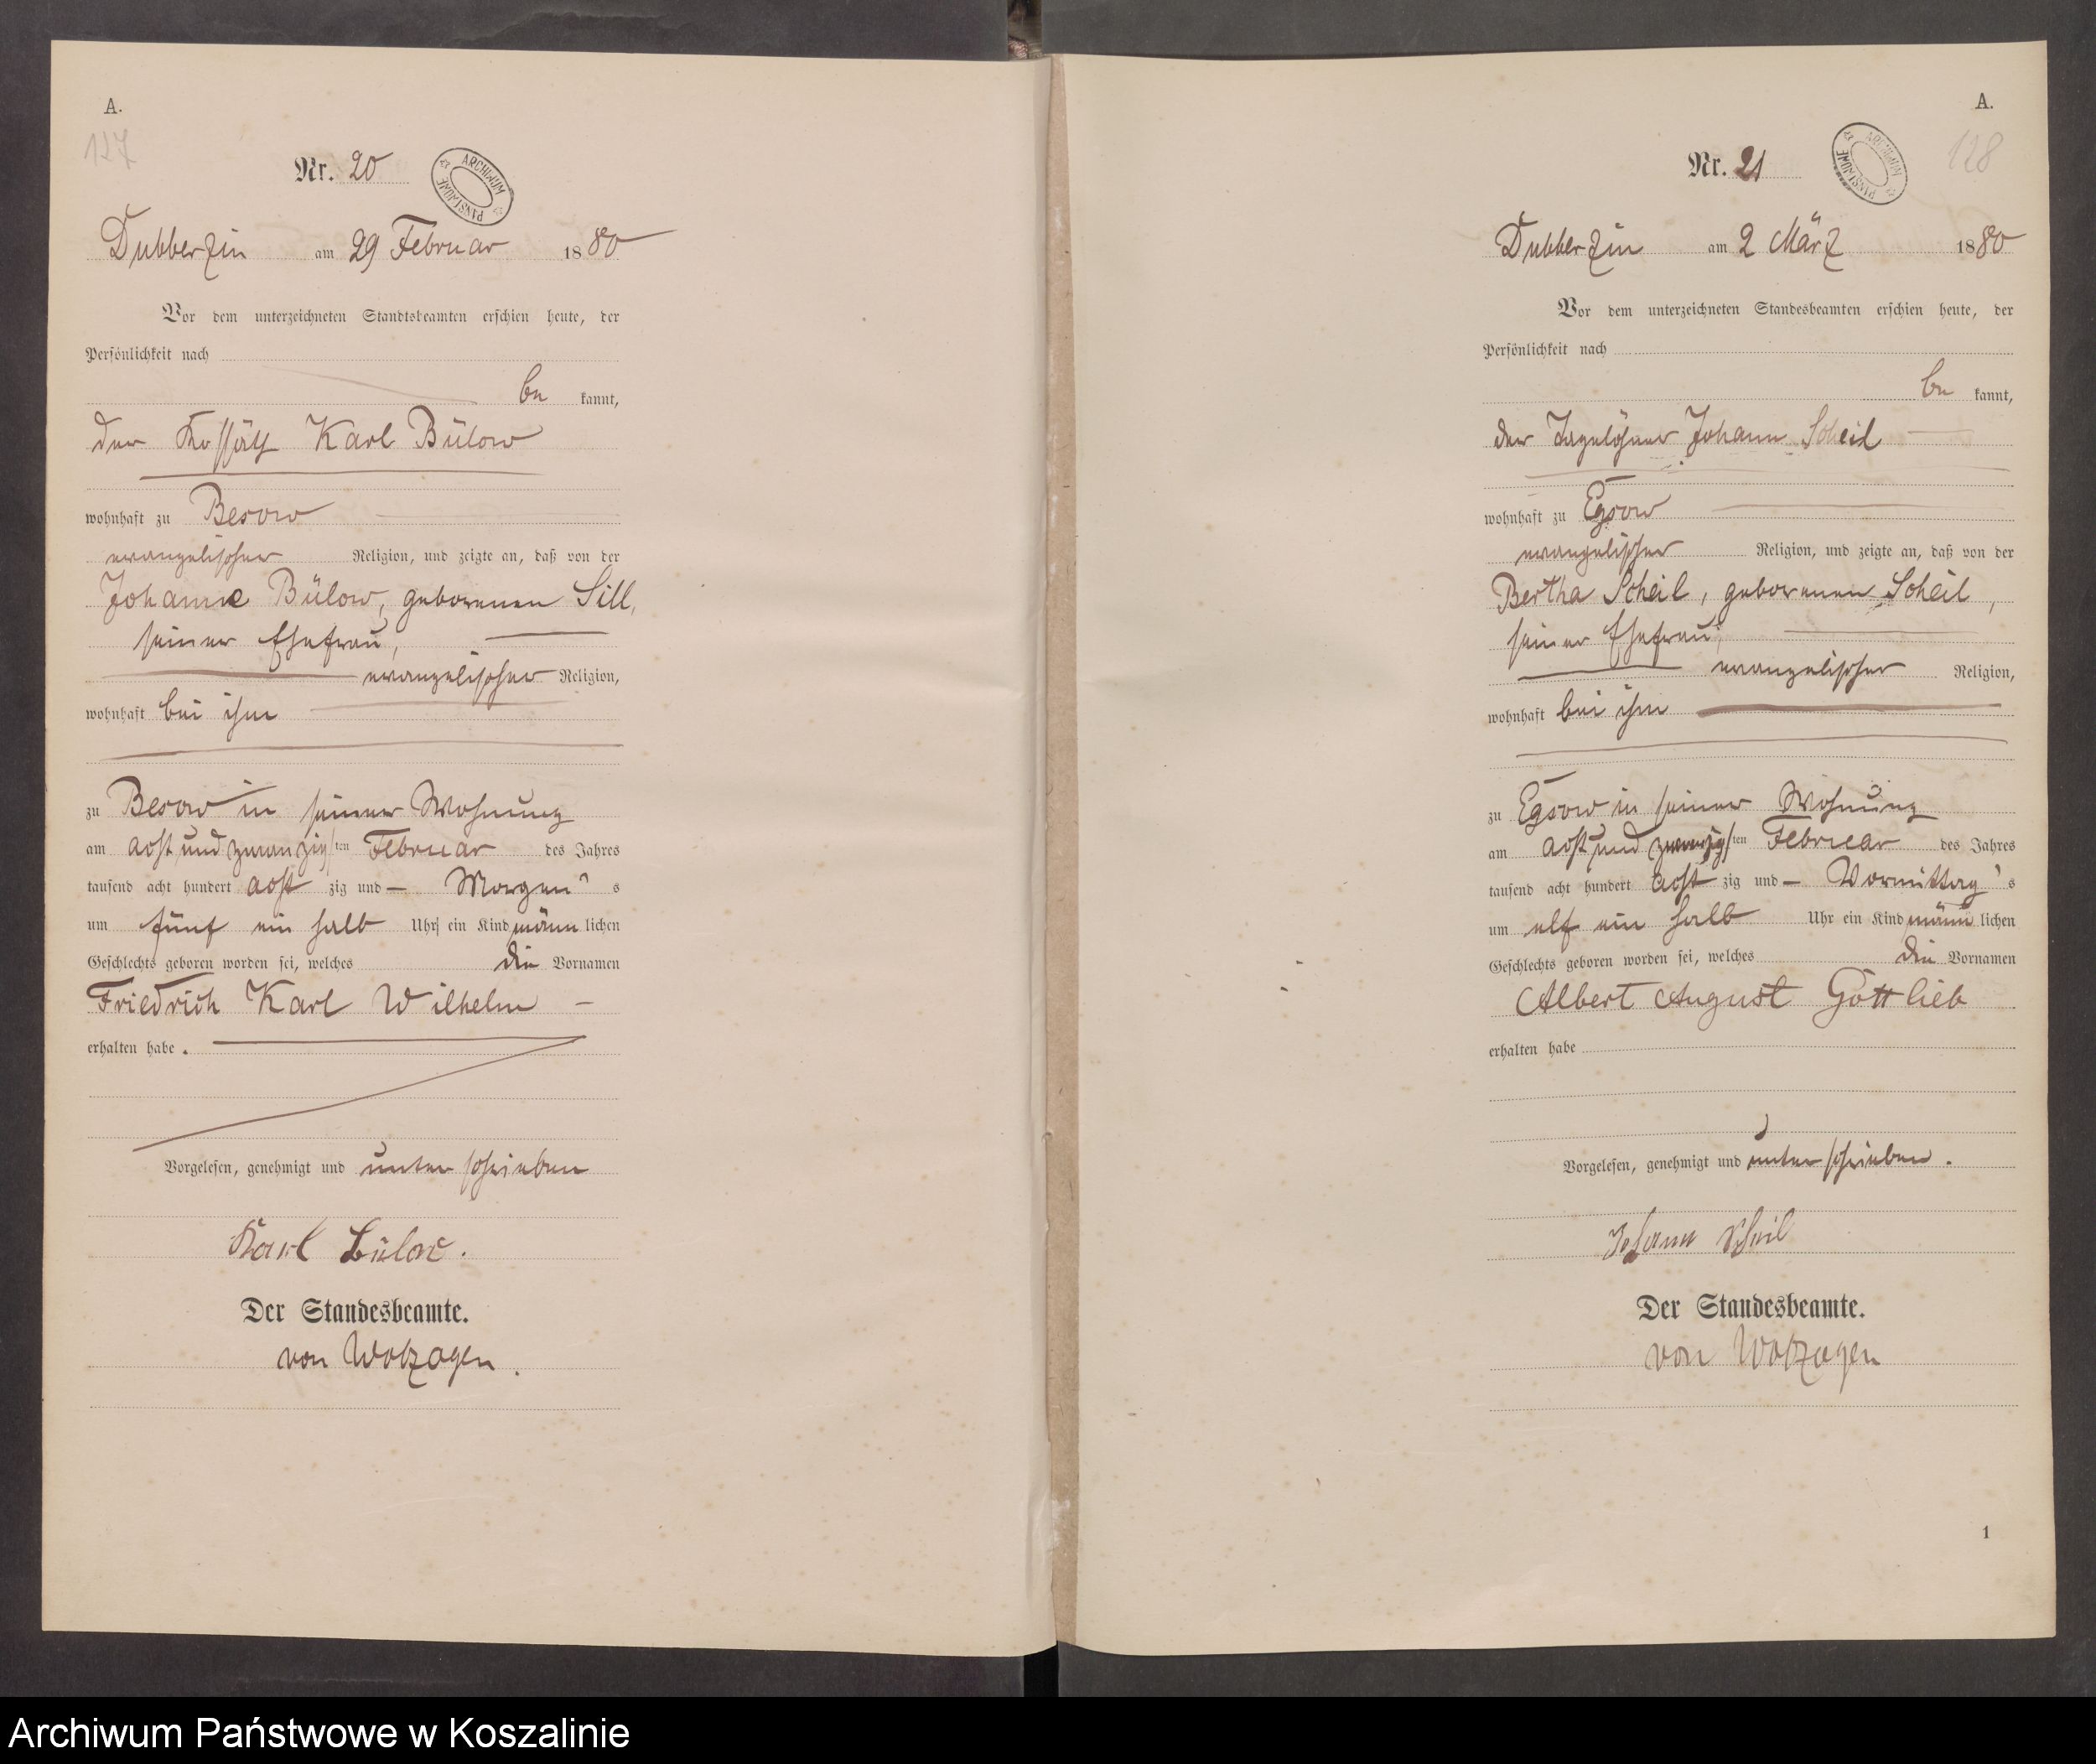 A.
127
Nr. 20
ARCHIWUM PAŃSTWOWE
Dubberzin am 29 Februar 1880
Vor dem unterzeichneten Standtsbeamten erschien heute, der
Persönlichkeit nach
be kannt,
der Kossäth Karl Bülow
wohnhaft zu Besow
evangelischer Religion, und zeigte an, daß von der
Johanne Bülow, geborenen Sill,
seiner Ehefrau,
evangelischer Religion,
wohnhaft bei ihm
zu Besow in seiner Wohnung
am acht und zwanzigsten Februar des Jahres
tausend acht hundert acht zig und – Morgen s
um fünf ein halb Uhr ein Kind männ lichen
Geschlechts geboren worden sei, welches die Vornamen
Friedrich Karl Wilhelm –
erhalten habe.
Vorgelesen, genehmigt und unterschrieben
Karl Bülow.
Der Standesbeamte.
von Wolzogen.
A.
128
Nr. 21
ARCHIWUM PAŃSTWOWE
Dubberzin am 2 März 1880
Vor dem unterzeichneten Standesbeamten erschien heute, der
Persönlichkeit nach
be kannt,
der Tagelöhner Johann Scheil
wohnhaft zu Egsow
evangelischer Religion, und zeigte an, daß von der
Bertha Scheil, geborenen Scheil,
seiner Ehefrau,
evangelischer Religion,
wohnhaft bei ihm
zu Egsow in seiner Wohnung
am acht und zwanzigsten Februar des Jahres
tausend acht hundert acht zig und – Vormittag s
um elf ein halb Uhr ein Kind männ lichen
Geschlechts geboren worden sei, welches die Vornamen
Albert August Gottlieb
erhalten habe
Vorgelesen, genehmigt und unterschrieben.
Johann Scheil
Der Standesbeamte.
von Wolzogen
1
Archiwum Państwowe w Koszalinie